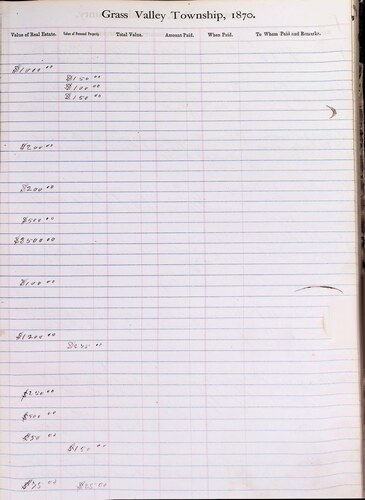 Grass Valley Township, 1870.
Value of Real Estate. Value of Personal Property. Total Value. Amount Paid. When Paid. To Whom Paid and Remarks.
$1000 00
$150 00
$100 00
$150 00
$200 00
$200 00
$500 00
$2500 00
$100 00
$1200 00
$275 00
$250 00
$300 00
$50 00
$150 00
$75 00